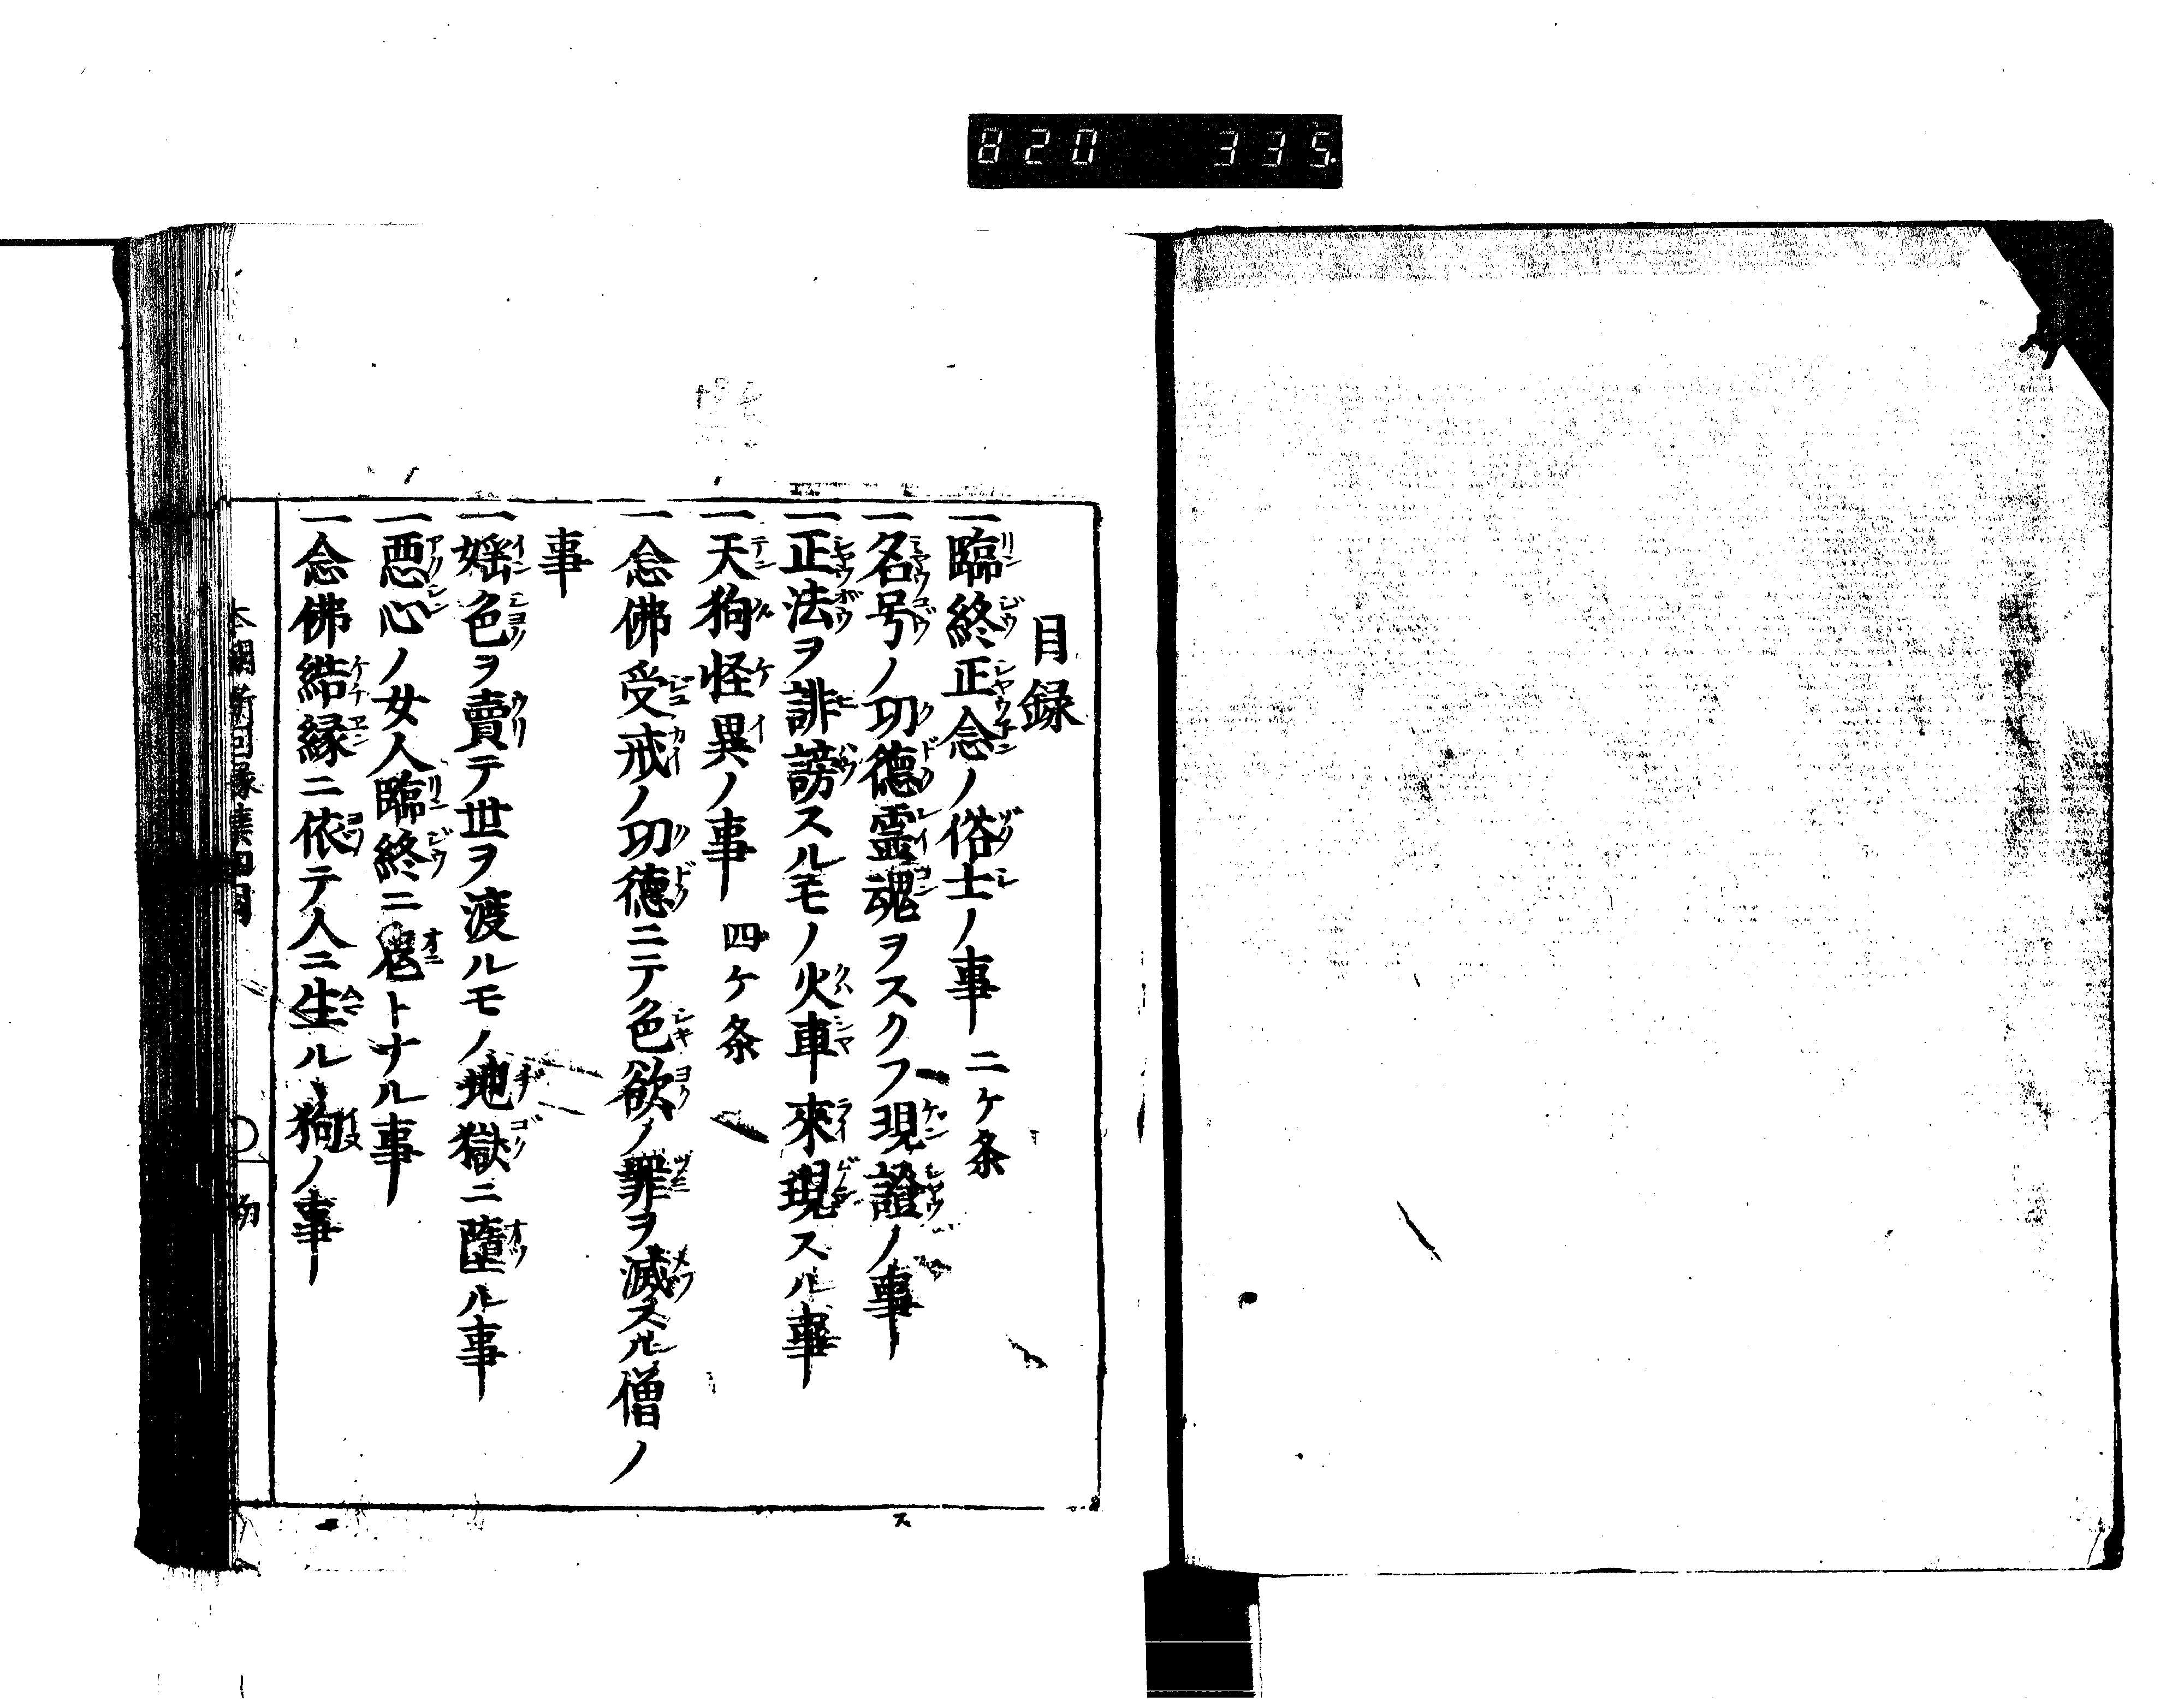 820 335
目録
一臨終正念ノ俗士ノ事 二ケ条
一名号ノ功徳霊魂ヲスクフ現證ノ事
一正法ヲ誹謗スルモノ火車來現スル事
一天狗怪異ノ事 四ケ条
一念佛受戒ノ功徳ニテ色欲ノ罪ヲ滅スル僧ノ
事
一婬色ヲ賣テ世ヲ渡ルモノ地獄ニ墮ル事
一悪心ノ女人臨終ニ鬼トナル事
一念佛結縁ニ依テ人ニ生ルヽ狗ノ事